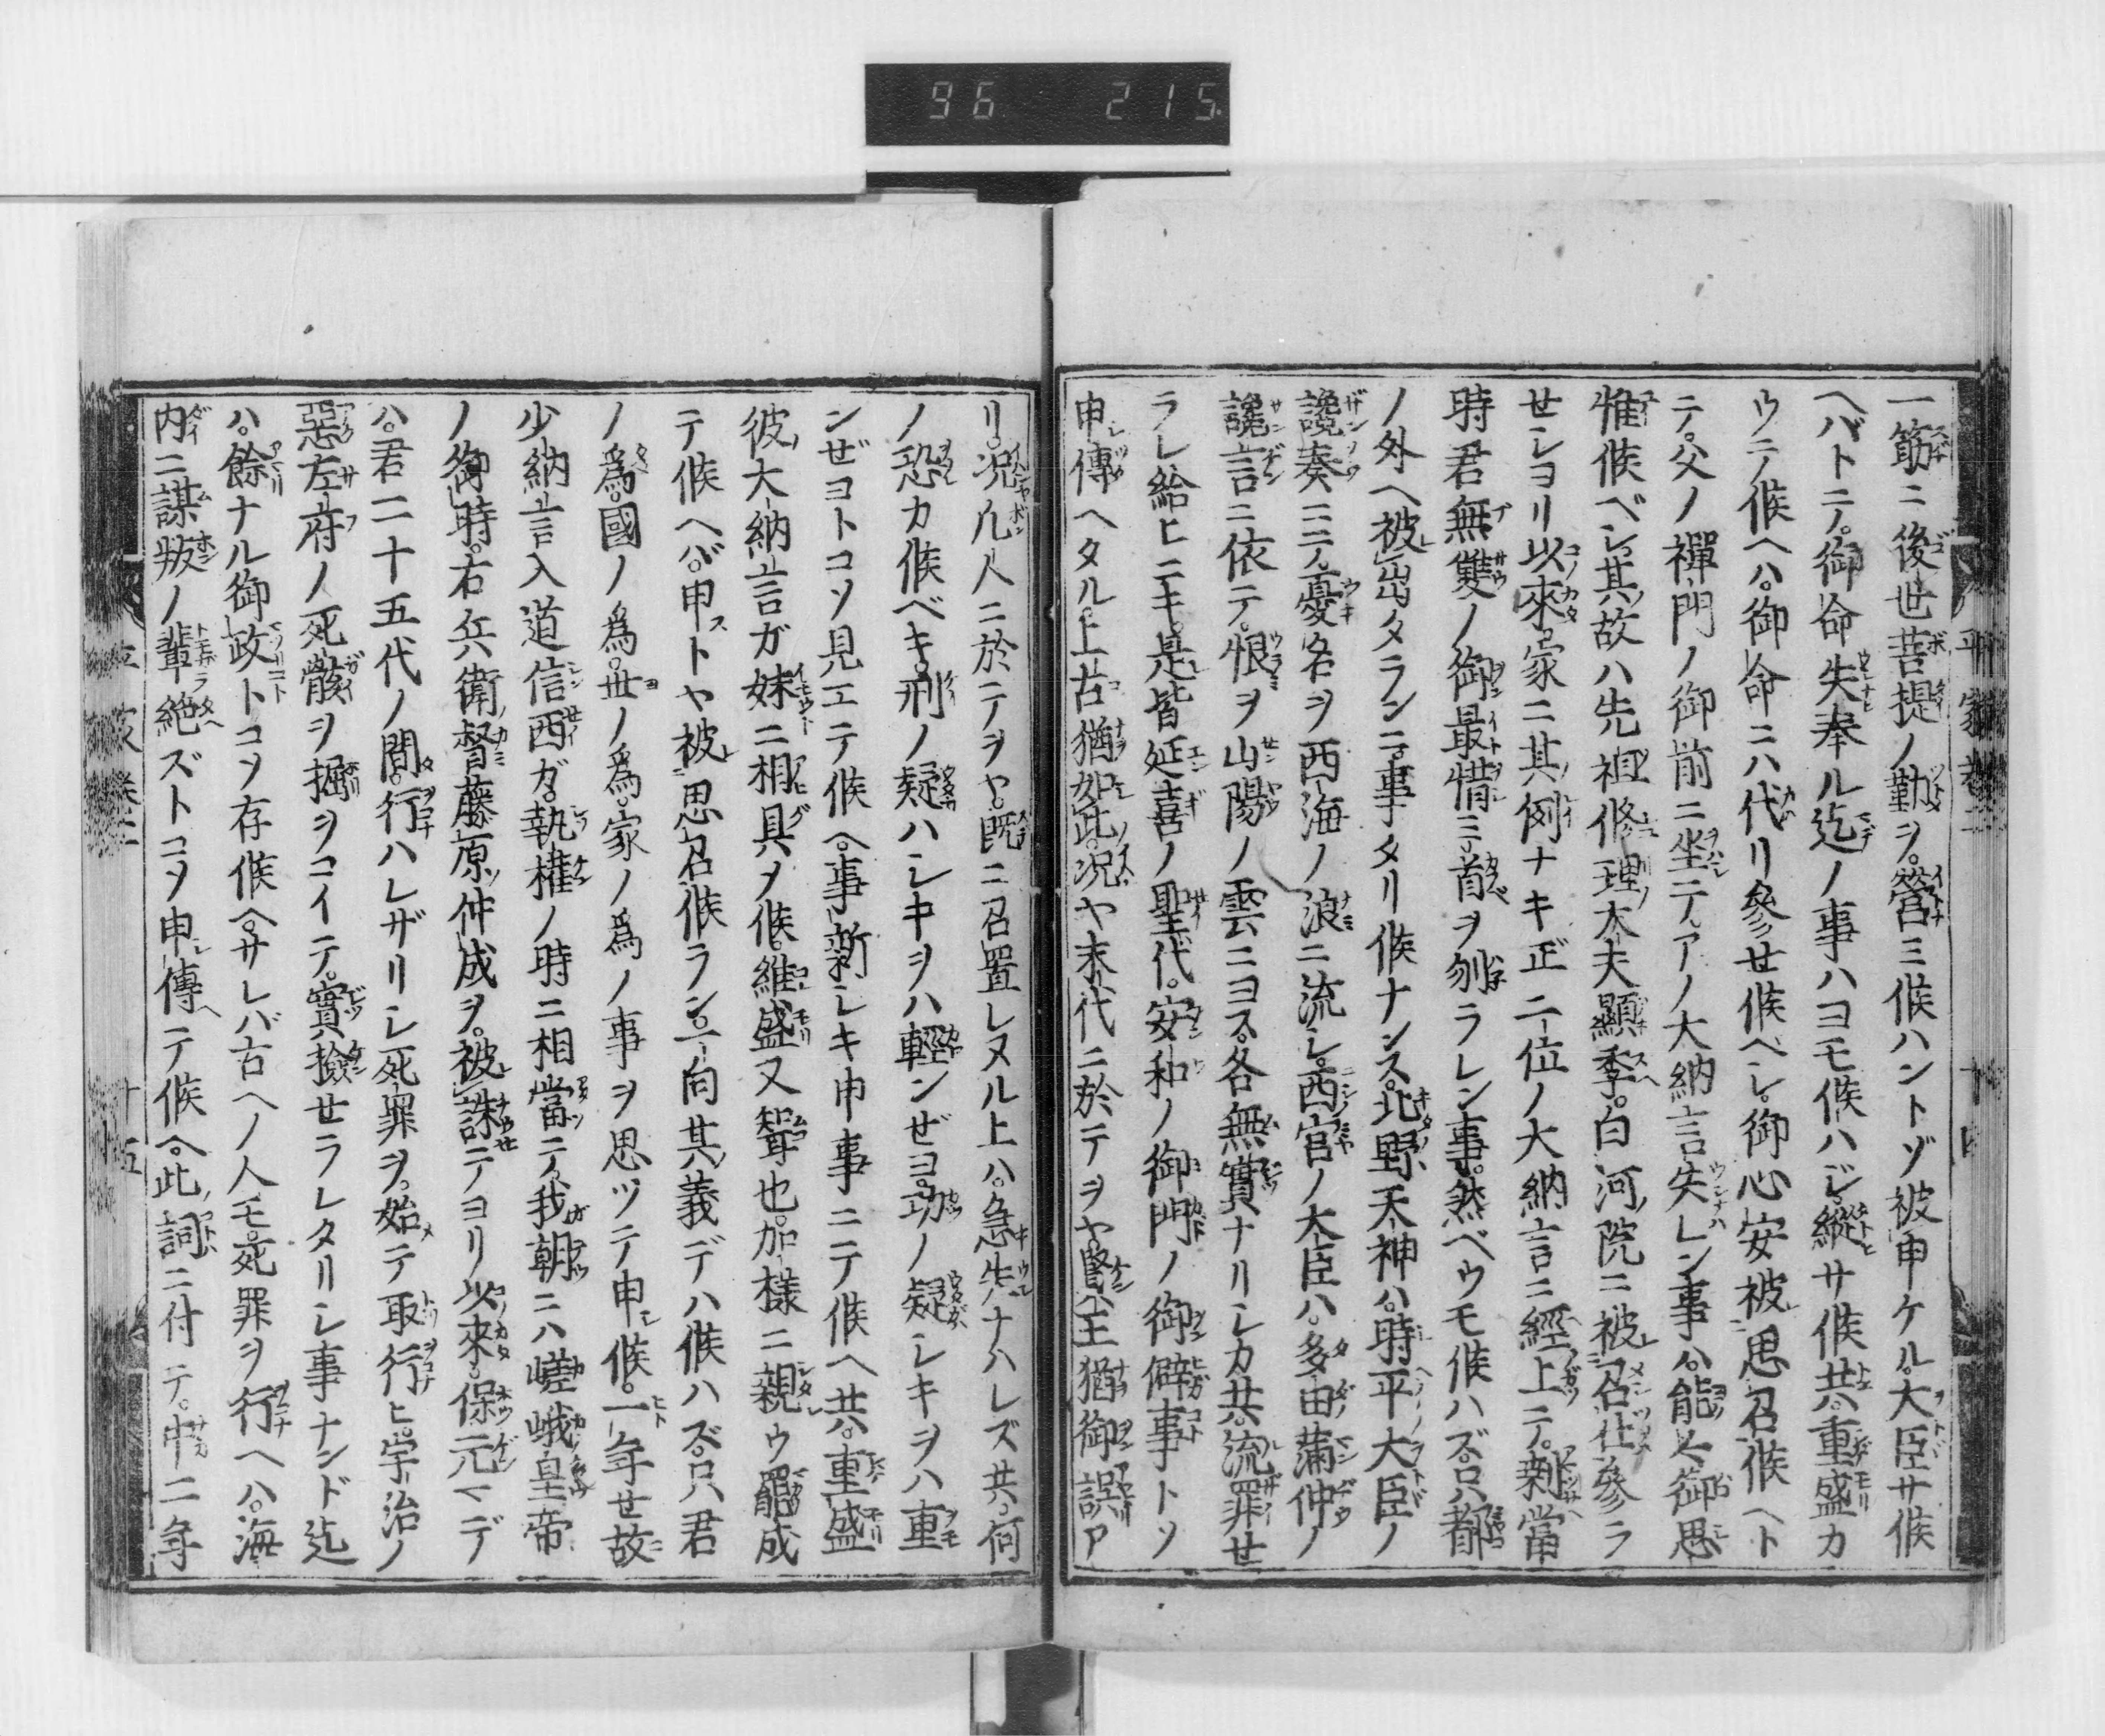 96 215.
一筋ニ後世菩提ノ勤ヲ。營ミ候ハントゾ被申ケル。大臣サ候
ヘバトテ。御命失奉ル迄ノ事ハヨモ候ハジ。縱サ候共。重盛カ
ウテ候ヘハ。御命ニハ代リ參セ候ベシ。御心安被思召候ヘト
テ。父ノ禪門ノ御前ニ坐テ。アノ大納言失レン事ハ。能々御思
惟候ベシ。其故ハ先祖修理大夫顯季。白河院ニ被召仕參ラ
セショリ以來。家ニ其例ナキ正二位ノ大納言ニ經上テ。剩當
時君無雙ノ御最惜ミ。首ヲ刎ラレン事。然ベウモ候ハズ。只都
ノ外ヘ被出タランニ。事タリ候ナンス。北野天神ハ。時平大臣ノ
讒奏ニテ。憂名ヲ西海ノ浪ニ流シ。西宮ノ大臣ハ。多田滿仲ノ
讒言ニ依テ。恨ヲ山陽ノ雲ニヨス。各無實ナリシカ共。流罪セ
ラレ給ヒニキ。是皆延喜ノ聖代。安和ノ御門ノ御僻事トソ
申傳ヘタル。上古猶如此。況ヤ末代ニ於テヲヤ。賢王猶御誤ア
平家卷二 十四
リ。況凡人ニ於テヲヤ。既ニ召置レヌル上ハ。急失ナハレズ共。何
ノ恐カ候ベキ。刑ノ疑ハシキヲハ輕ンゼヨ。功ノ疑シキヲハ重
ンゼヨトコソ見エテ候ヘ。事新シキ申事ニテ候ヘ共。重盛
彼大納言ガ妹ニ相具ソ候。維盛又聟也。加樣ニ親ウ罷成
テ候ヘバ。申ストヤ被思召候ラン。一向其義デハ候ハズ。只君
ノ爲。國ノ爲。世ノ爲。家ノ爲ノ事ヲ思ツテ申候。一年セ故
少納言入道信西ガ。執權ノ時ニ相當テ。我朝ニハ嵯峨皇帝
ノ御時。右兵衛督藤原仲成ヲ。被誅テヨリ以來。保元マデ
ハ。君二十五代ノ間。行ハレザリシ死罪ヲ。始テ取行ヒ。宇治ノ
惡左府ノ死骸ヲ掘ヲコイテ。實撿セラレタリシ事ナンド迄
ハ。餘ナル御政トコソ存候ヘ。サレバ古ヘノ人モ。死罪ヲ行ヘハ。海
内ニ謀叛ノ輩絶ズトコソ申傳テ候ヘ。此詞ニ付テ。中二年
平家卷二 十五